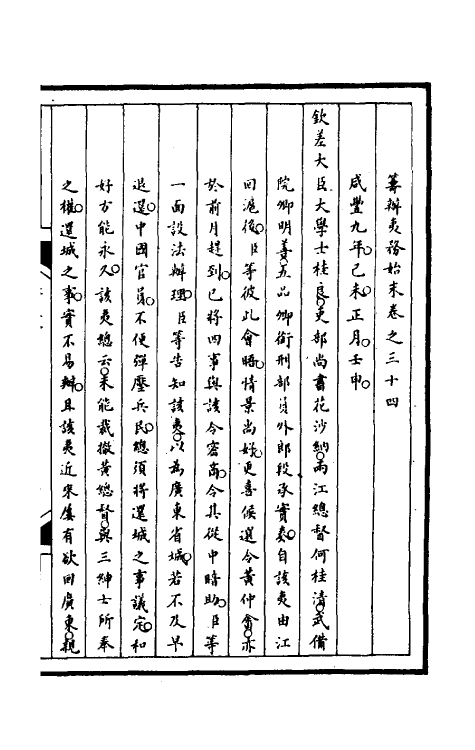 籌辦夷務始末卷之三十四
咸豐九年己未正月壬申
欽差大臣大學士桂良吏部尚書花沙納兩江總督何桂清武備
院卿明善五品卿銜刑部員外郎段承實奏自該夷由江
回滬後臣等彼此會晤情景尚好更喜候選令黃仲畬亦
於前月趕到已將四事與該令密商令其從中暗助臣等
一面設法辦理臣等告知該夷以為廣東省城若不及早
退還中國官員不便彈壓兵民總須將還城之事議定和
好方能永久該夷總云未能裁撤黃總督與三紳士所奉
之權還城之事實不易辦且該夷近來屢有欲回廣東親